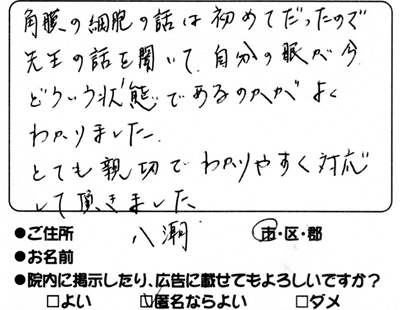 角膜の細胞の話は初めてだったので
先生の話を聞いて、自分の眼が今
どういう状態であるのかがよく
わかりました。
とても親切でわかりやすく対応
して頂きました
●ご住所 八潮 市・区・郡
●お名前
●院内に掲示したり、広告に載せてもよろしいですか?
□よい ☑匿名ならよい □ダメ